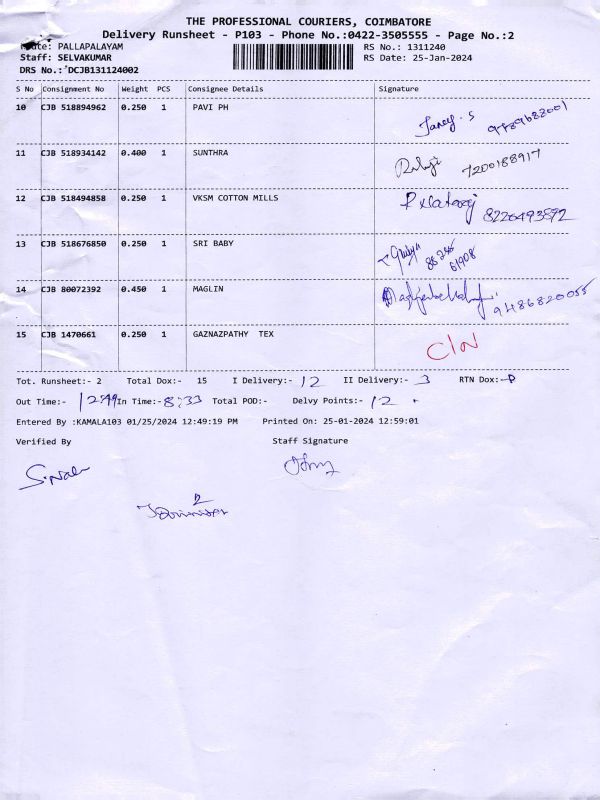 THE PROFESSIONAL COURIERS, COIMBATORE
Delivery Runsheet - P103 - Phone No.:0422-3505555 - Page No.:2
Route: PALLAPALAYAM RS No.: 1311240
Staff: SELVAKUMAR RS Date: 25-Jan-2024
DRS No.: DCJB131124002
S No Consignment No Weight PCS Consignee Details Signature
10 CJB 518894962 0.250 1 PAVI PH
11 CJB 518934142 0.400 1 SUNTHRA 7200188917
12 CJB 518494858 0.250 1 VKSM COTTON MILLS
13 CJB 518676850 0.250 1 SRI BABY
61908
14 CJB 80072392 0.450 1 MAGLIN 9486820055
15 CJB 1470661 0.250 1 GAZNAZPATHY TEX C/N
Tot. Runsheet:- 2 Total Dox:- 15 I Delivery:- 12 II Delivery:- 3 RTN Dox:-
Out Time:- 12:49 In Time:- 8:33 Total POD:- Delvy Points:- 12
Entered By :KAMALA103 01/25/2024 12:49:19 PM Printed On: 25-01-2024 12:59:01
Verified By Staff Signature